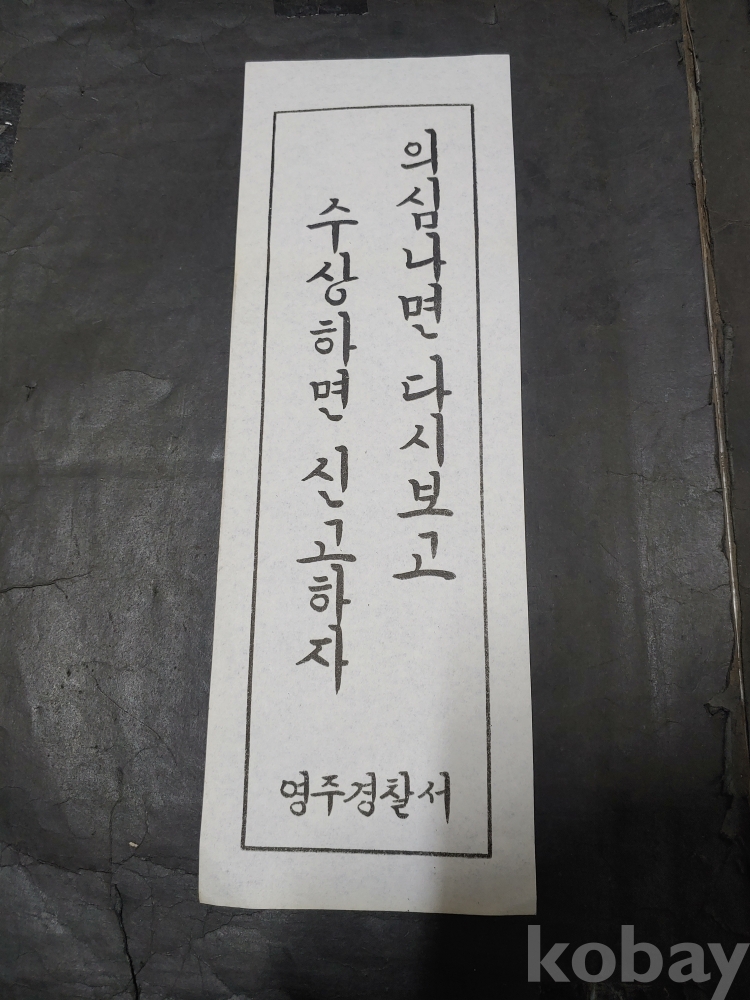 의심나면 다시보고
수상하면 신고하자
영주경찰서
kobay